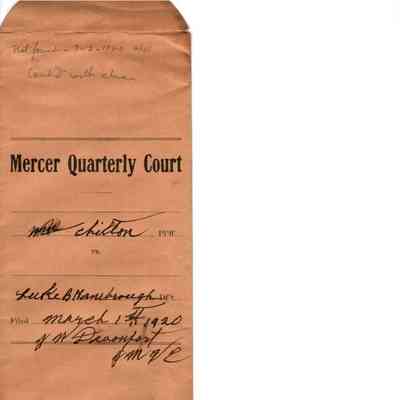 Not found - 3-2-1920
Mercer Quarterly Court
Chilton Pl'ff
vs.
Luke B Hansbrough Def.
Filed March 1st 1920
J W Davenport